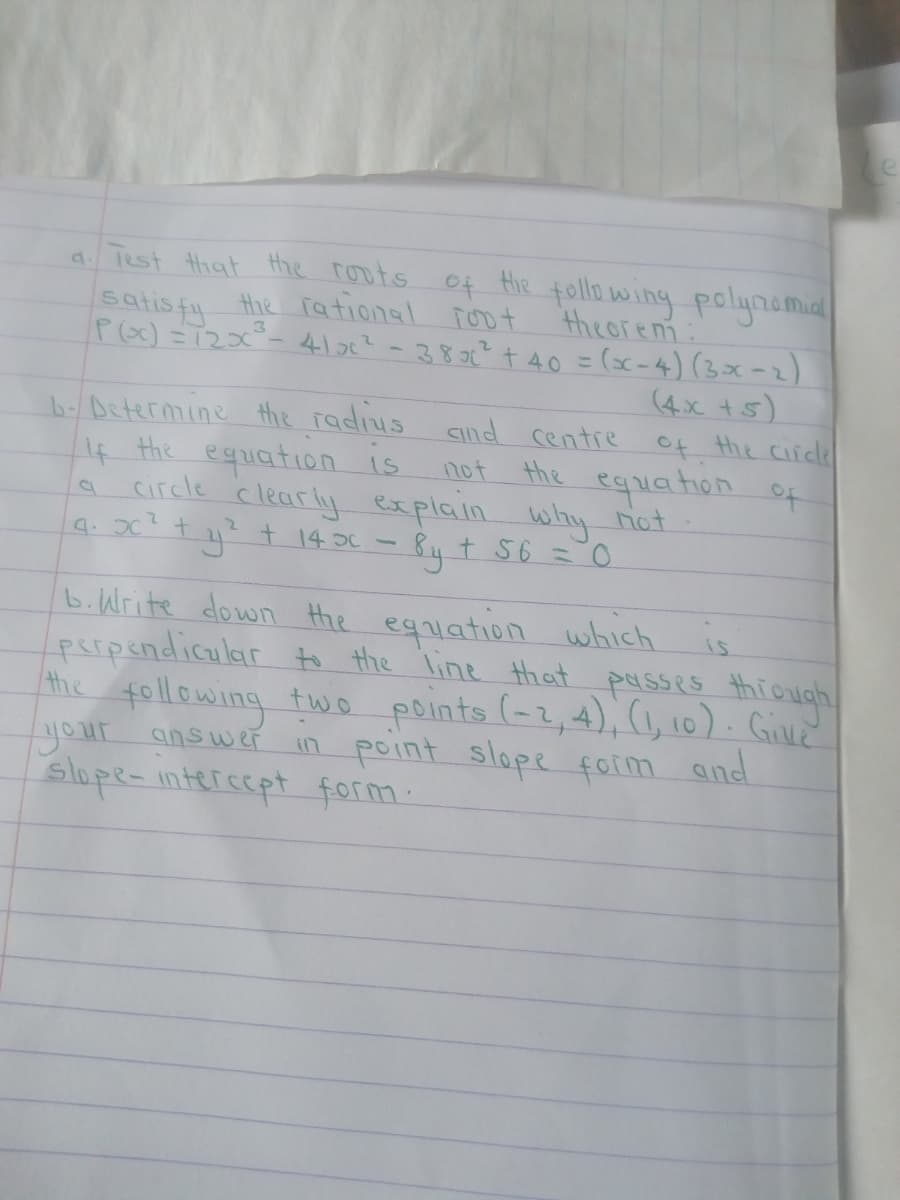 a. Test that the roots of the following polynomial
satisfy the rational root theorem:
P(x) = 12x³ - 41x² - 38x² + 40 = (x-4)(3x-2)
(4x +5)
b- Determine the radius and centre of the circle
If the equation is not the equation of
a circle clearly explain why not.
a. x² + y² + 14x - 8y + 56 = 0
b. Write down the equation which is
perpendicular to the line that passes through
the following two points (-2, 4), (1, 10). Give
your answer in point slope form and
slope-intercept form.